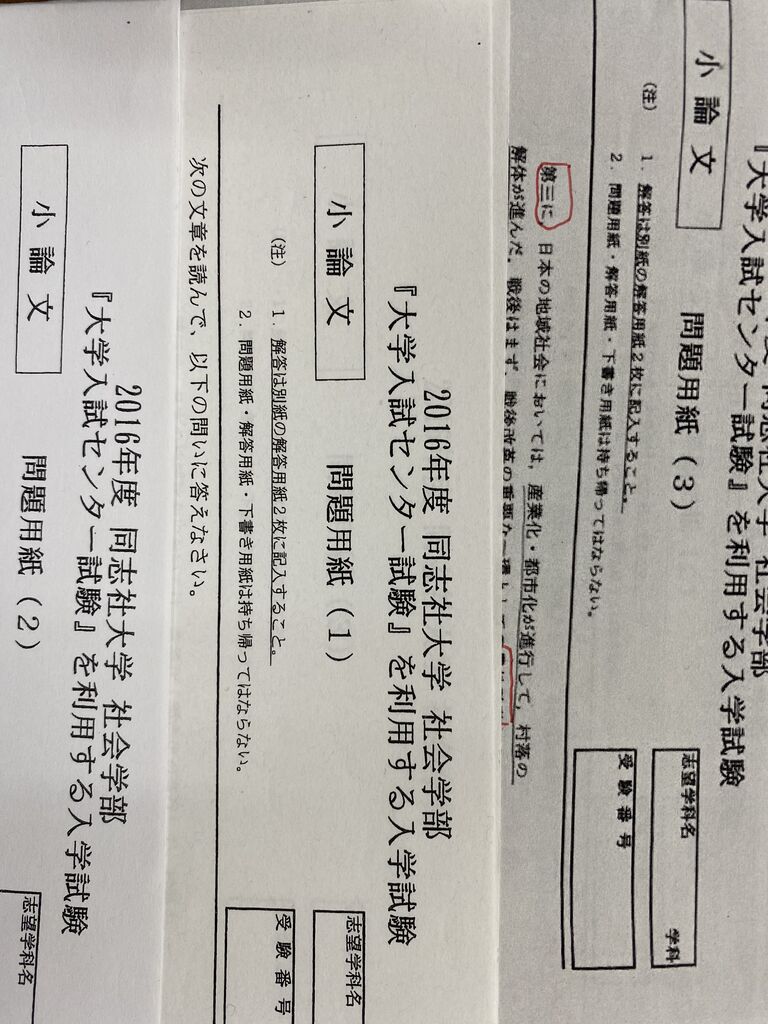 2016年度 同志社大学 社会学部
『大学入試センター試験』を利用する入学試験
小論文
問題用紙（2）
志望学科名
2016年度 同志社大学 社会学部
『大学入試センター試験』を利用する入学試験
小論文
問題用紙（1）
志望学科名
（注）
1．解答は別紙の解答用紙2枚に記入すること。
2．問題用紙・解答用紙・下書き用紙は持ち帰ってはならない。
受験番号
次の文章を読んで、以下の問いに答えなさい。
同志社大学 社会学部
『大学入試センター試験』を利用する入学試験
小論文
問題用紙（3）
志望学科名
学科
（注）
1．解答は別紙の解答用紙2枚に記入すること。
2．問題用紙・解答用紙・下書き用紙は持ち帰ってはならない。
受験番号
第三に，日本の地域社会においては，産業化・都市化が進行して，村落の
解体が進んだ。戦後はまず，戦後改革の重要な一環として